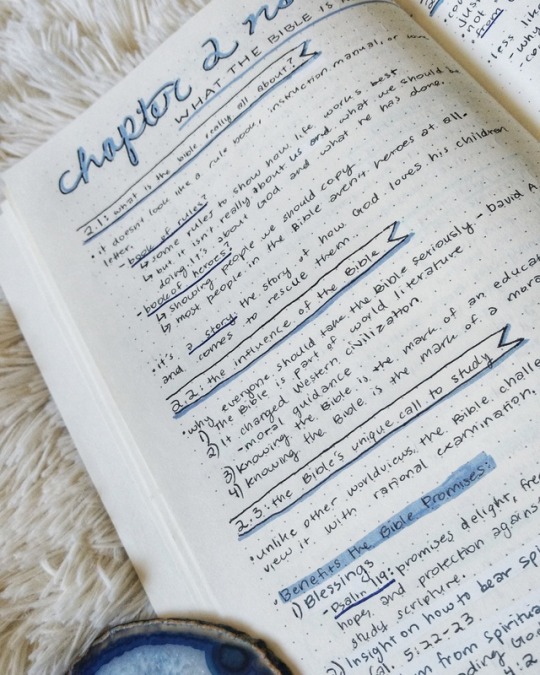 chapter 2 no
WHAT THE BIBLE IS
2.1: what is the bible really all about?
• it doesn't look like a rule book, instruction manual, or love
letter.
- book of rules?
↳ some rules to show how life works best
↳ but it isn't really about us and what we should be
doing, it's about God and what he has done.
- book of heroes?
↳ showing people we should copy
↳ most people in the Bible aren't heroes at all.
• it's a story. the story of how God loves his children
and comes to rescue them
2.2: the influence of the Bible
• why everyone should take the Bible seriously - David A
1) The Bible is part of world literature
2) It changed Western civilization
- moral guidance
3) knowing the Bible is the mark of an educat
4) knowing the Bible is the mark of a mora
2.3: the Bible's unique call to study
• unlike other worldviews, the Bible challe
view it with rational examination.
• Benefits the Bible Promises:
1) Blessings
- Psalm 119: promises delight, free
hope, and protection agains
study scripture.
2) Insight on how to bear spi
Gal. 5:22-23
m from spiritua
ading God
4:2
• just
• not
from
• less lik
- why
co